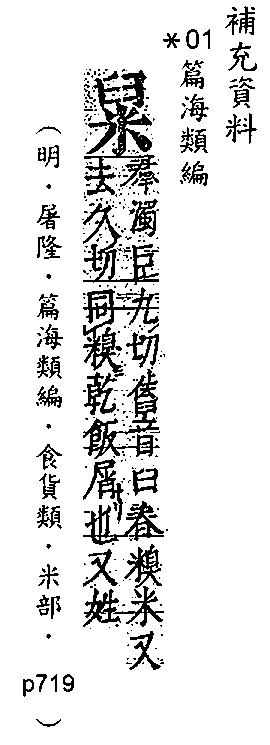 補充資料
*01 篇海類編
羣濁臣九切舊音曰舂糗米又
去久切同糗乾飯屑也又姓
（明．屠隆．篇海類編．食貨類．米部．p719）